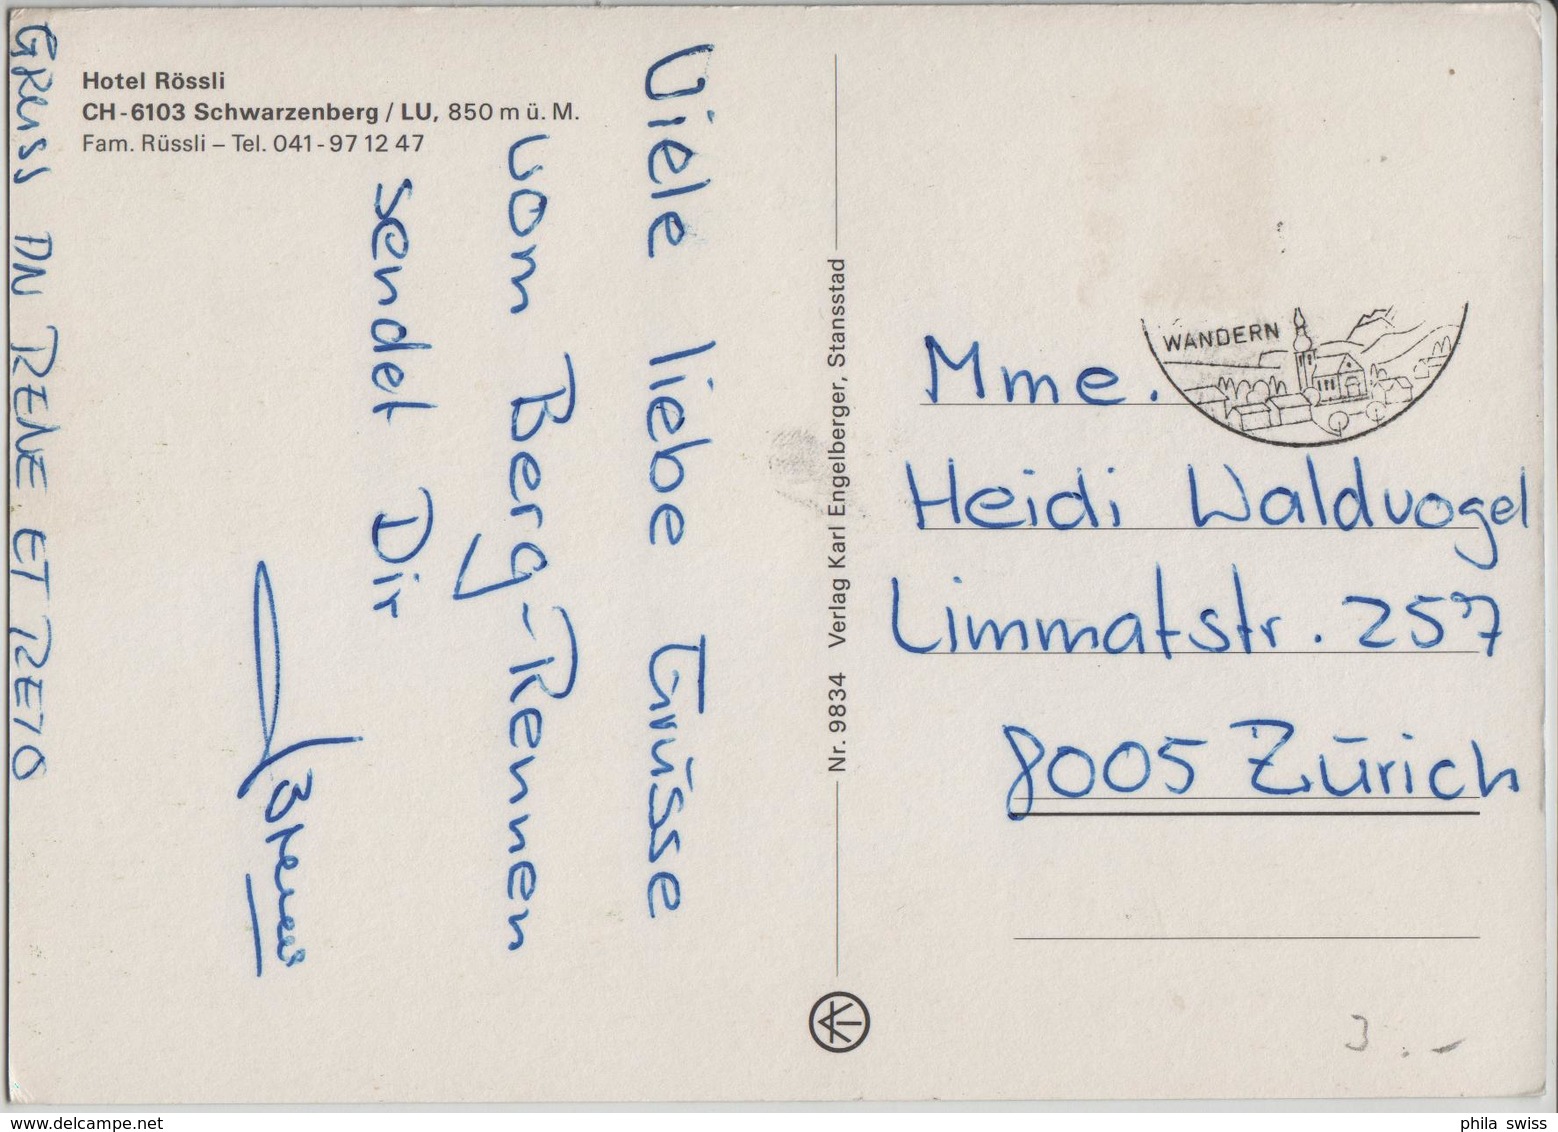 Hotel Rössli
CH-6103 Schwarzenberg / LU, 850 m ü. M.
Fam. Rüssli – Tel. 041-97 12 47
Viele liebe Grüsse
vom Berg-Rennen
sendet Dir
GRUSS AN RENE ET RETO
Nr. 9834 Verlag Karl Engelberger, Stansstad
WANDERN
Mme.
Heidi Waldvogel
Limmatstr. 257
8005 Zürich
3.-
delcampe.net
phila swiss